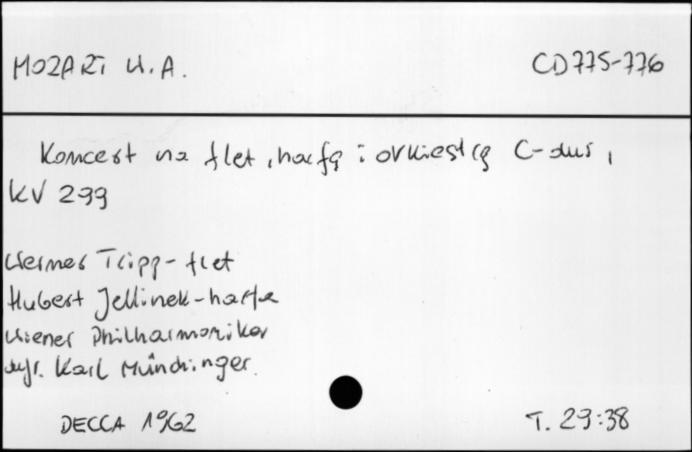 MOZART W. A.
CD 775-776
Koncert na flet, harfę i orkiestrę C-dur,
KV 299
Werner Tripp - flet
Hubert Jellinek - harfa
Wiener Philharmoniker
dyr. Karl Münchinger.
DECCA 1962
T. 29:38